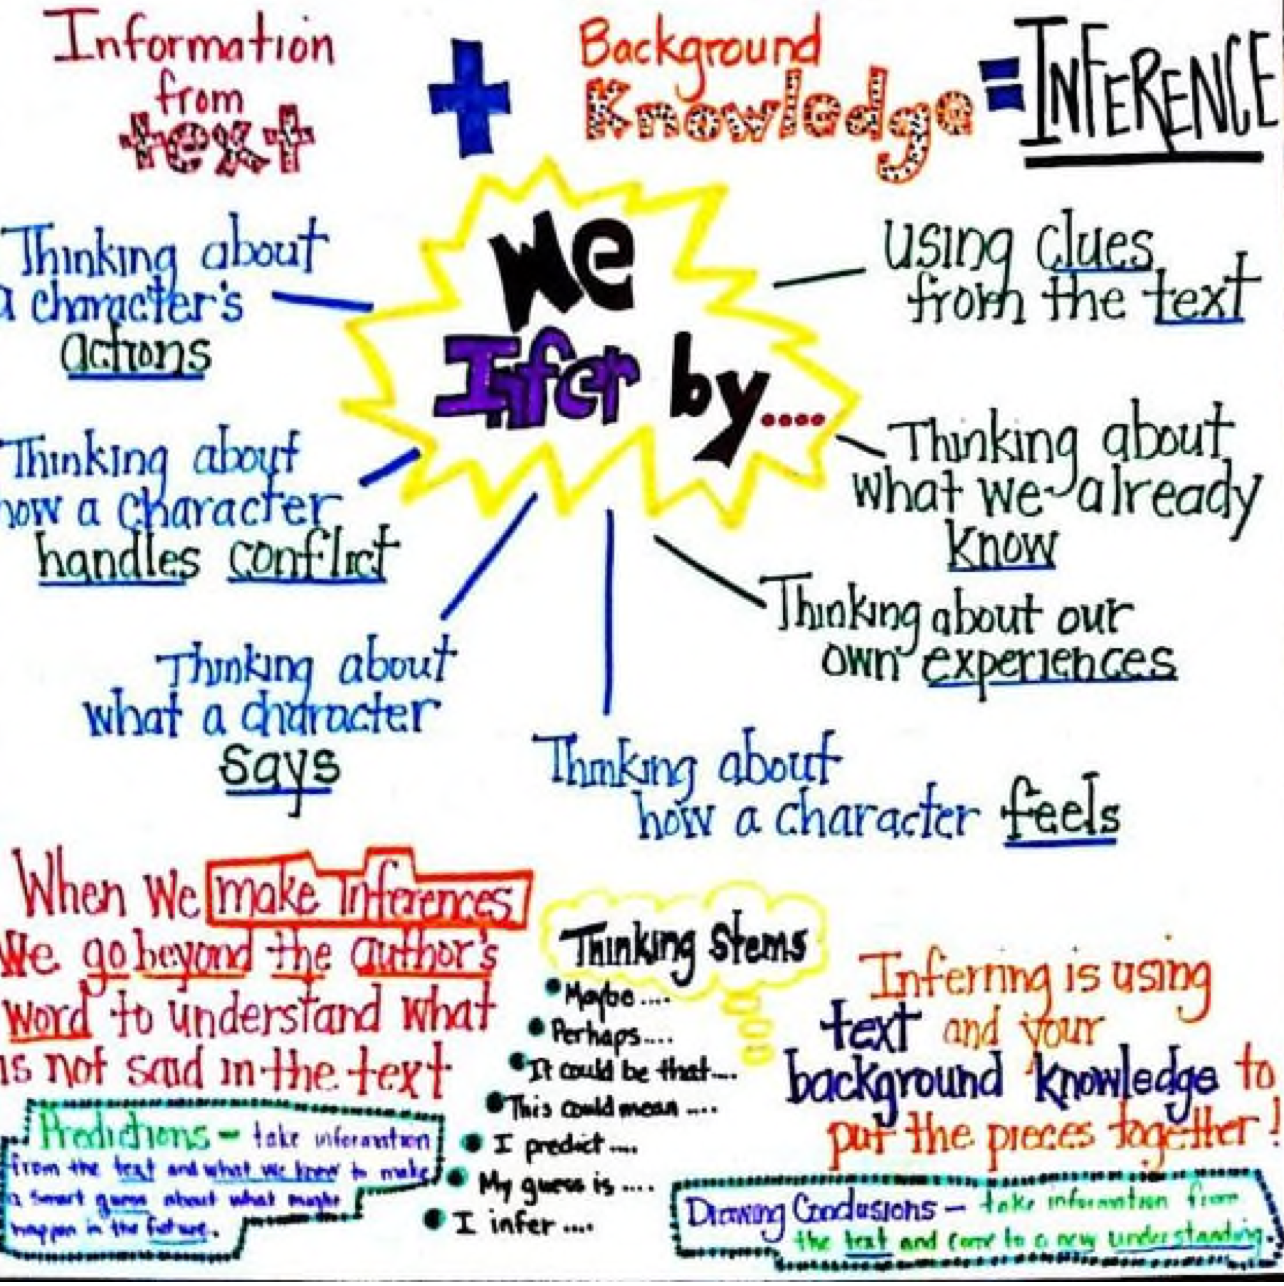 Information
from
text
+
Background
Knowledge
=
INFERENCE
We
Infer by....
Thinking about
a character's
actions
Thinking about
how a character
handles conflict
Thinking about
what a character
says
Thinking about
how a character feels
using clues
from the text
Thinking about
what we already
know
Thinking about our
own experiences
When We make Inferences
We go beyond the author's
word to understand what
is not said in the text
Predictions - take information
from the text and what we know to make
a smart guess about what might
happen in the future.
Thinking Stems
• Maybe ....
• Perhaps....
• It could be that....
• This could mean ....
• I predict ....
• My guess is ....
• I infer ....
Inferring is using
text and your
background knowledge to
put the pieces together!
Drawing Conclusions - take information from
the text and come to a new understanding.